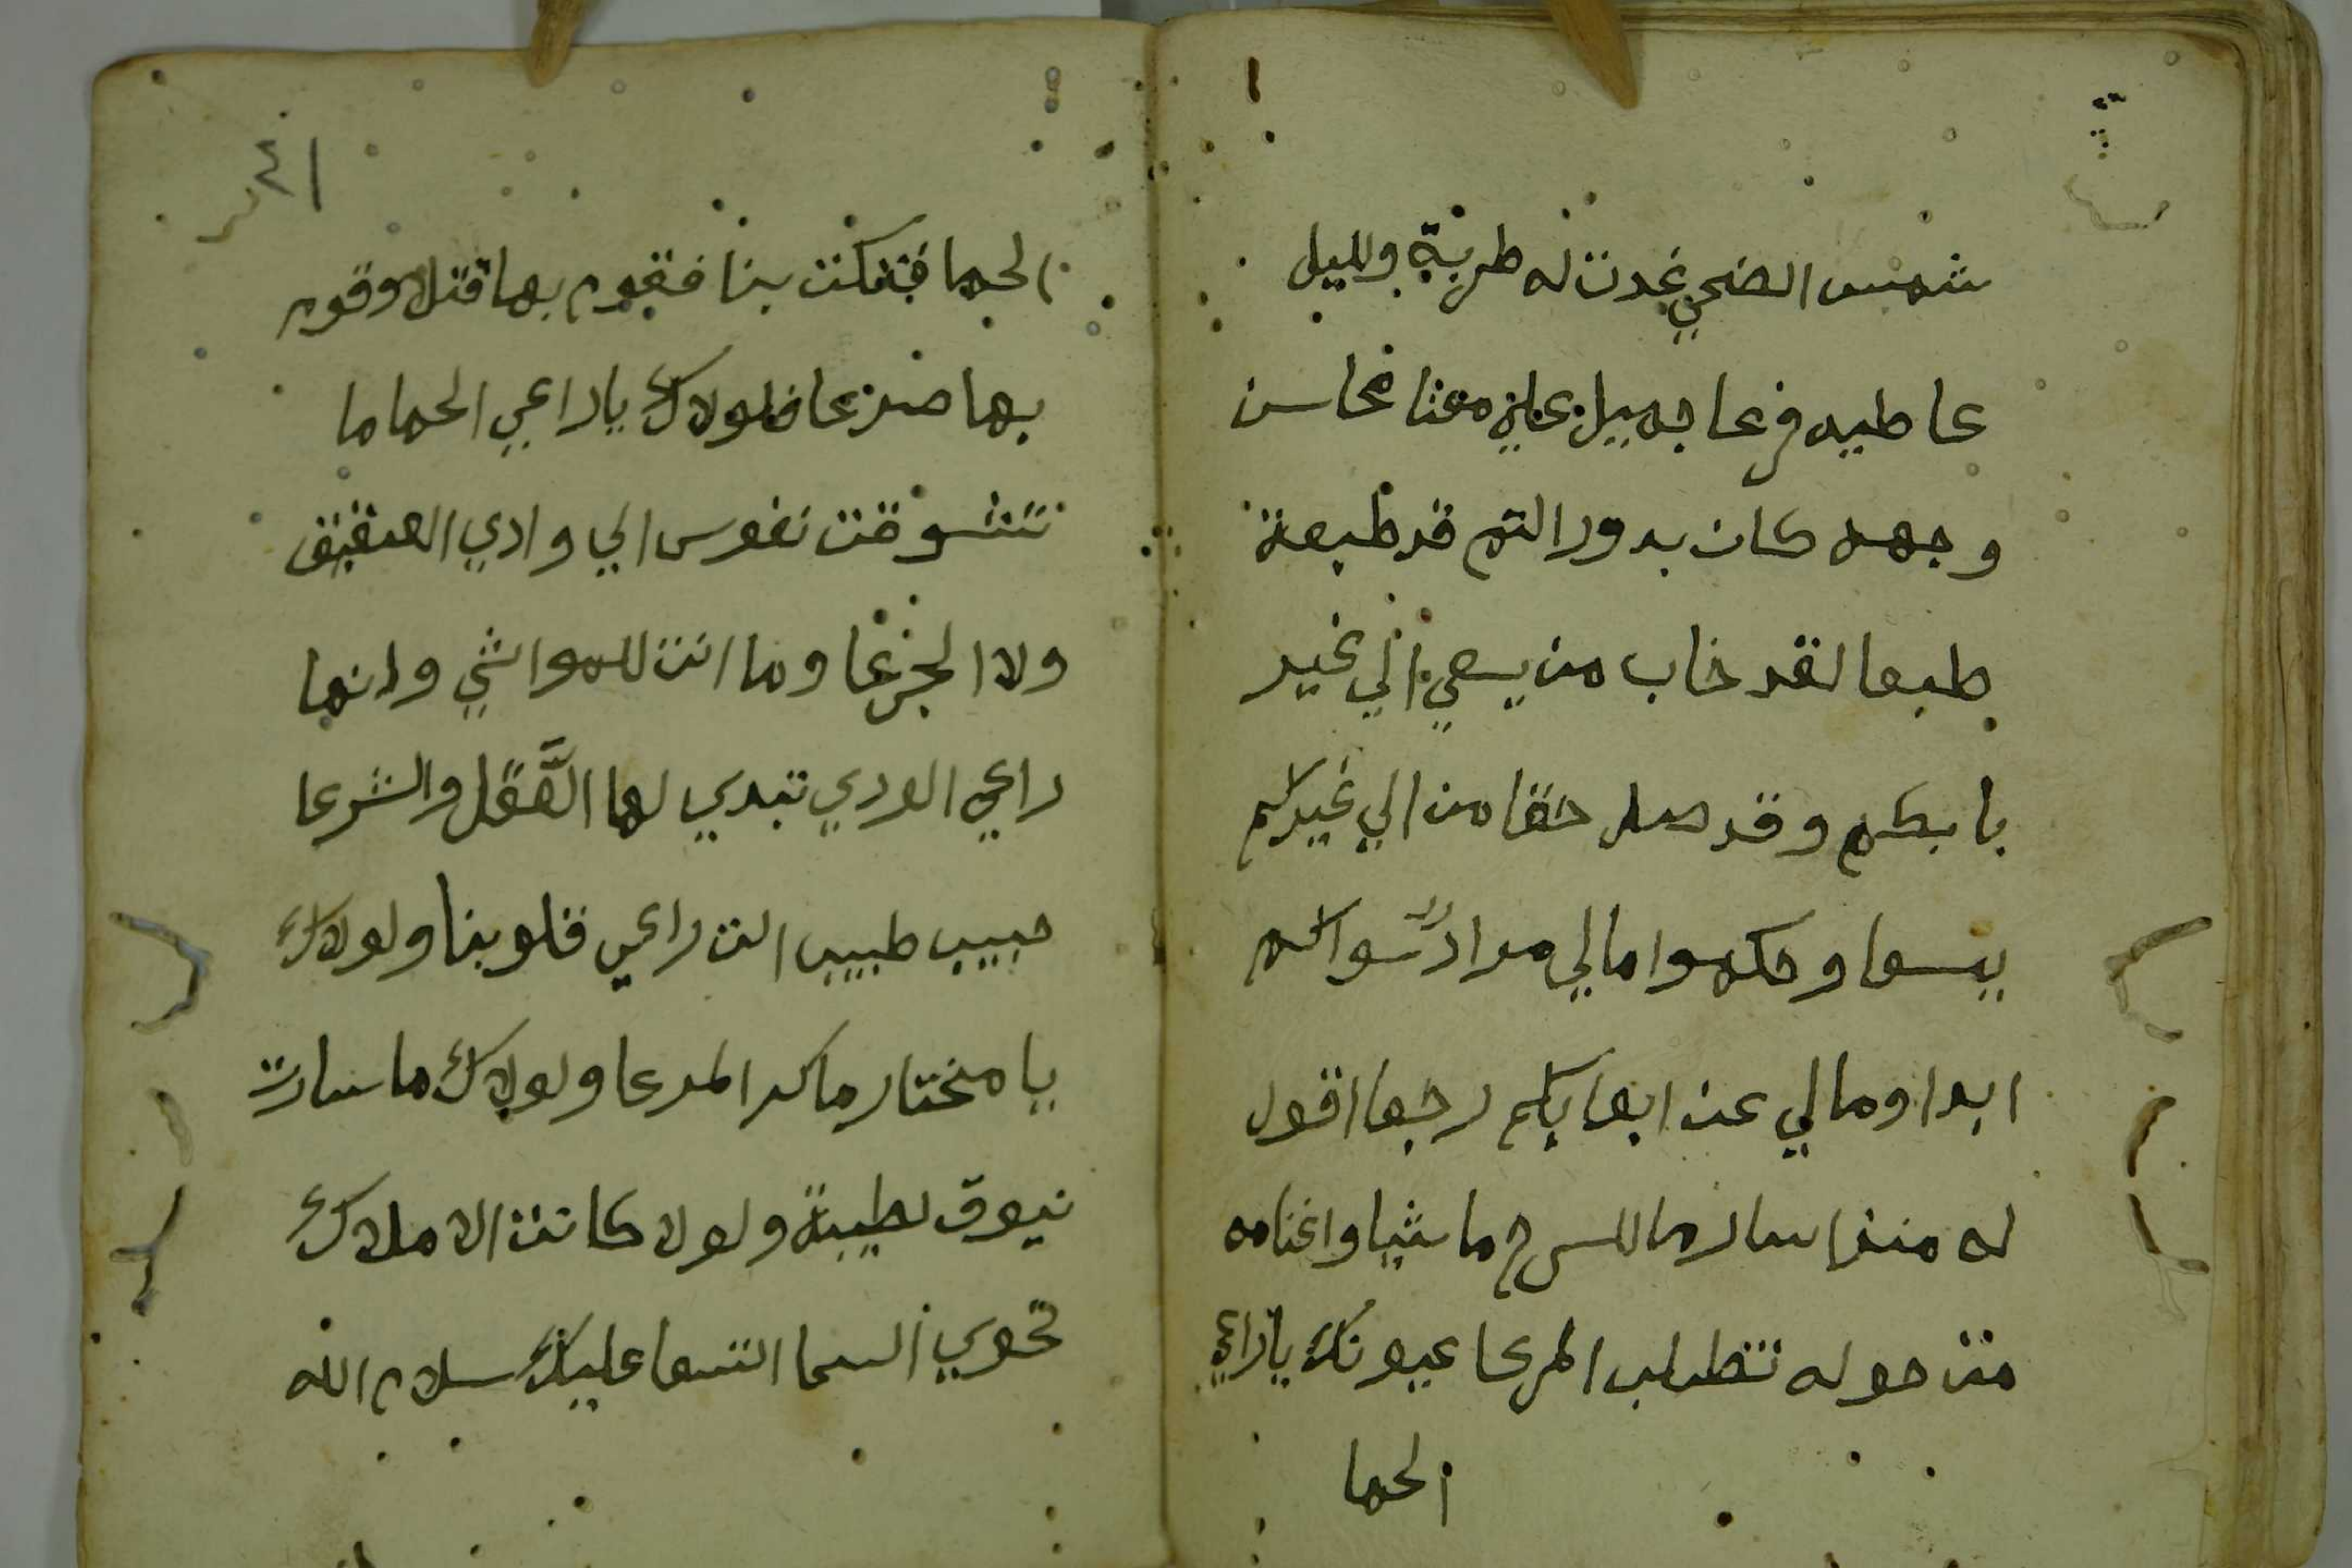 شمس الضحي غدت له طربة ولليل
عاطيه فرعا جميل علي معنا محاسن
وجهه كان بدور التم قد طبعة
طبعا لقد خاب من يسعي الي غير
بابكم وقد ضل حقا من الي غيركم
يسعا وحكموا مالي مراد سواكم
ابدا ومالي عن ابوابكم رجعا اقول
له منذ سار للسرح ماشيا واغنامه
من حوله تتطلب المرعا عيونك ياراعي
الحما
١٤
الحما فتكت بنا فقوم بها قتلا وقوم
بها صرعا فلولاك ياراعي الحما ما
تشوقت نفوس الي وادي العقيق
ولا الجزعا وما انت للمواشي وانما
راعي الوري تبدي لها العقل والشرعا
حبيب طبيب انت راعي قلوبنا ولولاك
يا مختار ماكد المدعا ولولاك ما سارت
نيوق لطيبة ولولا كانت الاملاك
تحوي السما التسعا عليك سلام الله